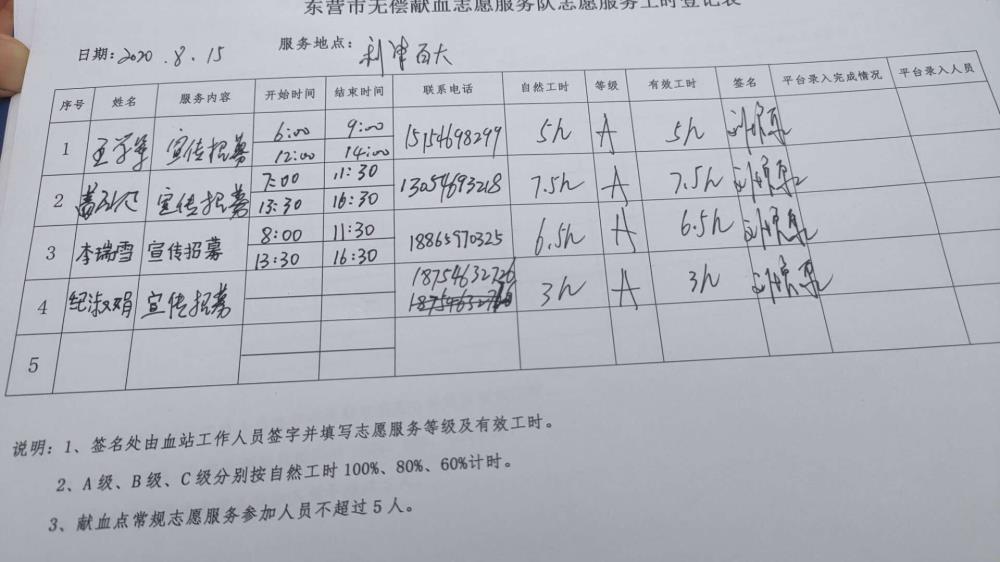 东营市无偿献血志愿服务队志愿服务工时登记表
日期: 2020 . 8 . 15 服务地点: 利津百大
序号 姓名 服务内容 开始时间 结束时间 联系电话 自然工时 等级 有效工时 签名 平台录入完成情况 平台录入人员
1 王学军 宣传招募 6:00 9:00 15154698299 5h A 5h
12:00 14:00
2 宣传招募 7:00 11:30 13054693218 7.5h A 7.5h
13:30 16:30
3 李瑞雪 宣传招募 8:00 11:30 18865970325 6.5h A 6.5h
13:30 16:30
4 纪淑娟 宣传招募 18754632726 3h A 3h
5
说明: 1、签名处由血站工作人员签字并填写志愿服务等级及有效工时。
2、A 级、B 级、C 级分别按自然工时 100%、80%、60%计时。
3、献血点常规志愿服务参加人员不超过 5 人。